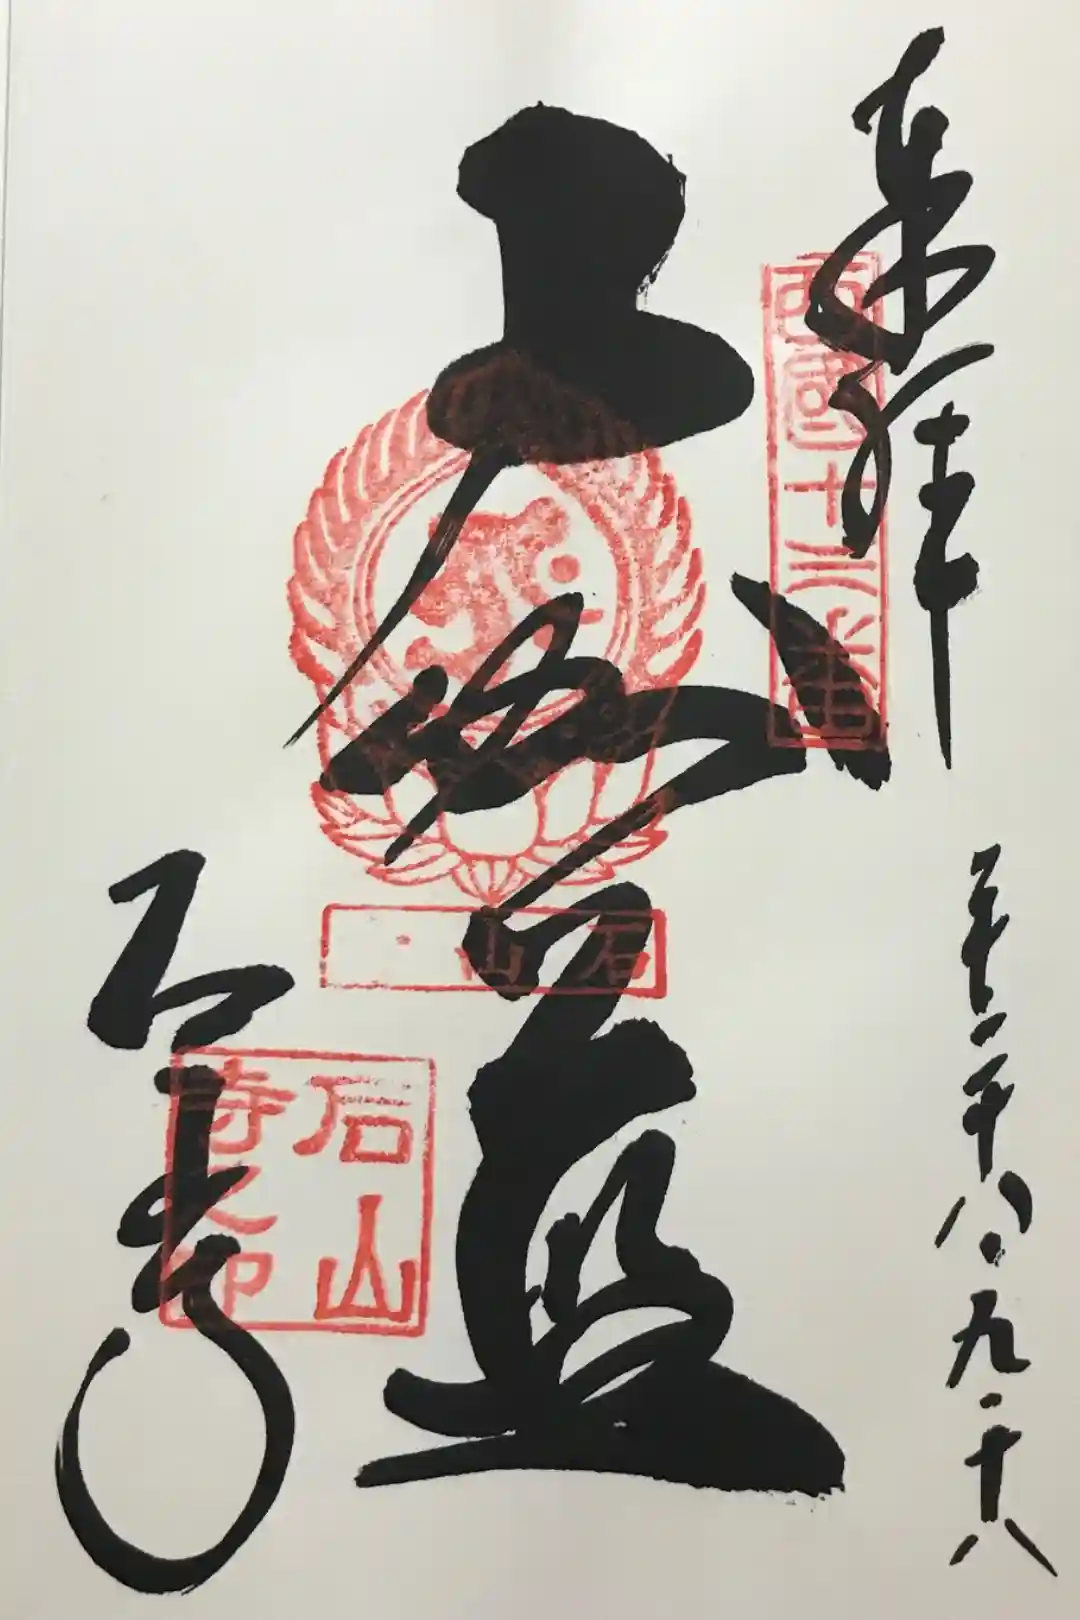 奉拝
西國十三番
平成二十八・九・十八
大伽藍
石山
石山寺
石山
寺之印